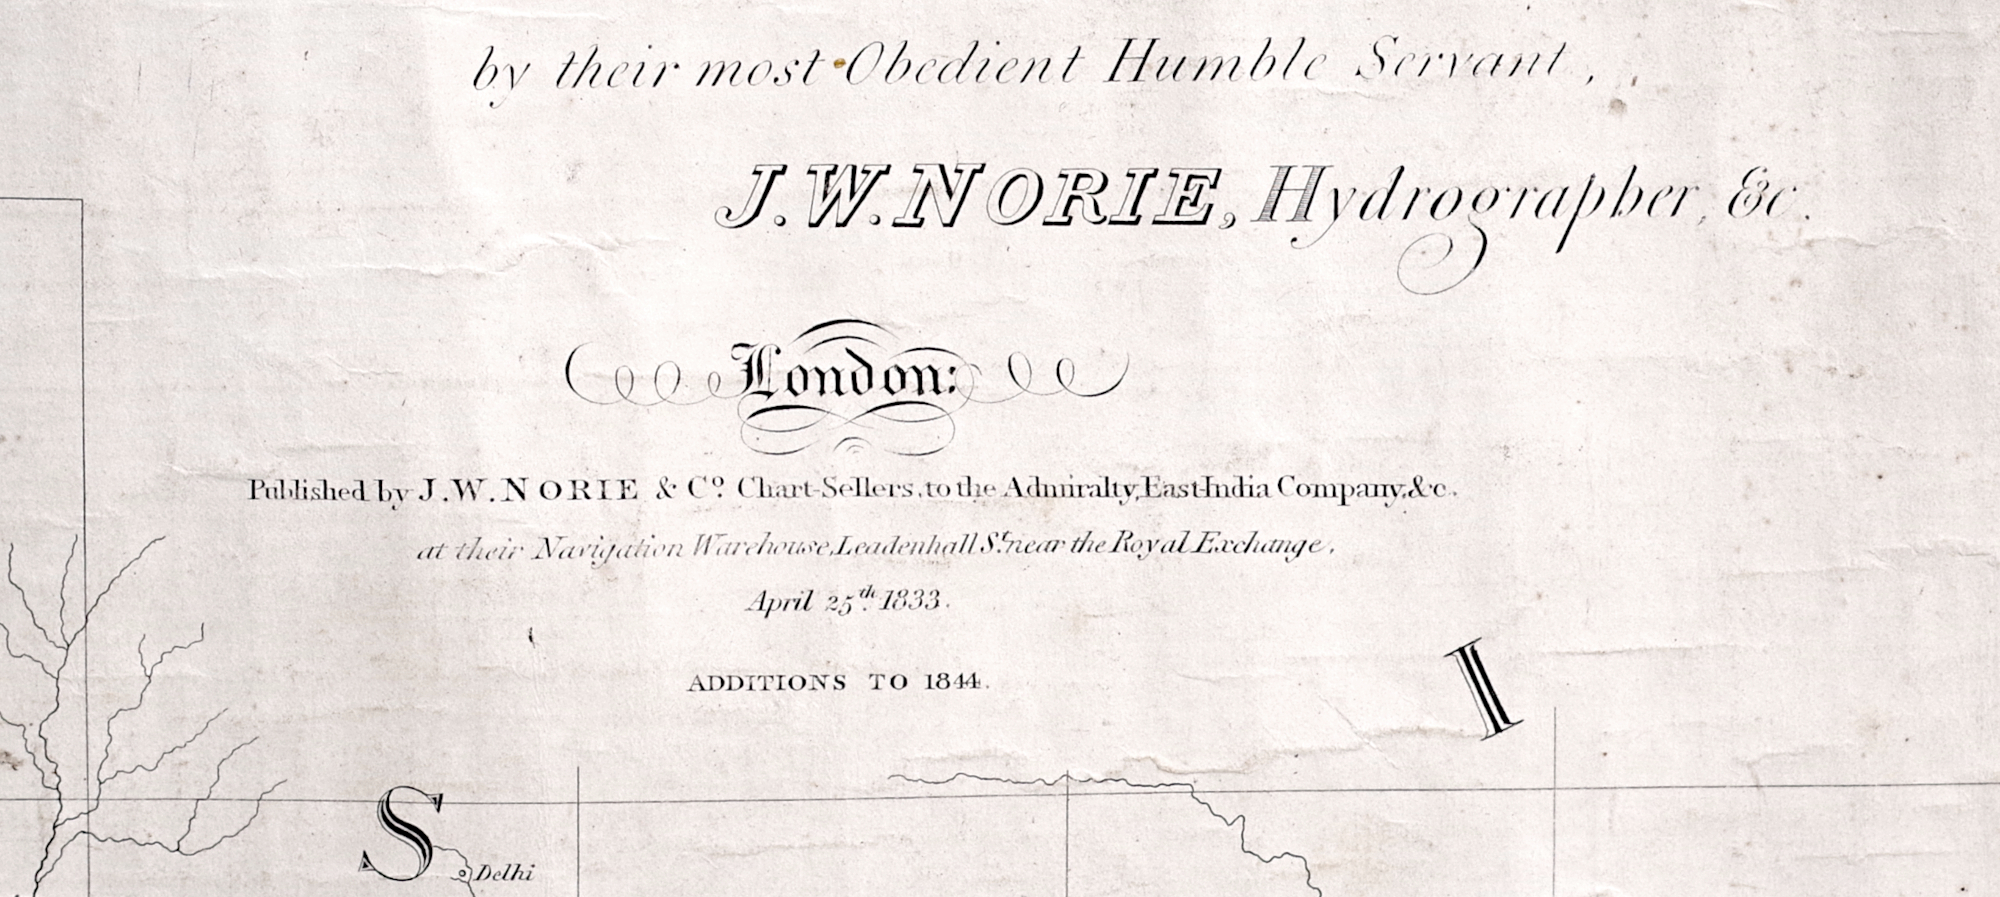 by their most Obedient Humble Servant,
J. W. NORIE, Hydrographer, &c.
London:
Published by J. W. NORIE & Cº. Chart-Sellers, to the Admiralty, East-India Company, &c.
at their Navigation Warehouse, Leadenhall St. near the Royal Exchange.
April 25th. 1833.
ADDITIONS TO 1844.
I
S
Delhi